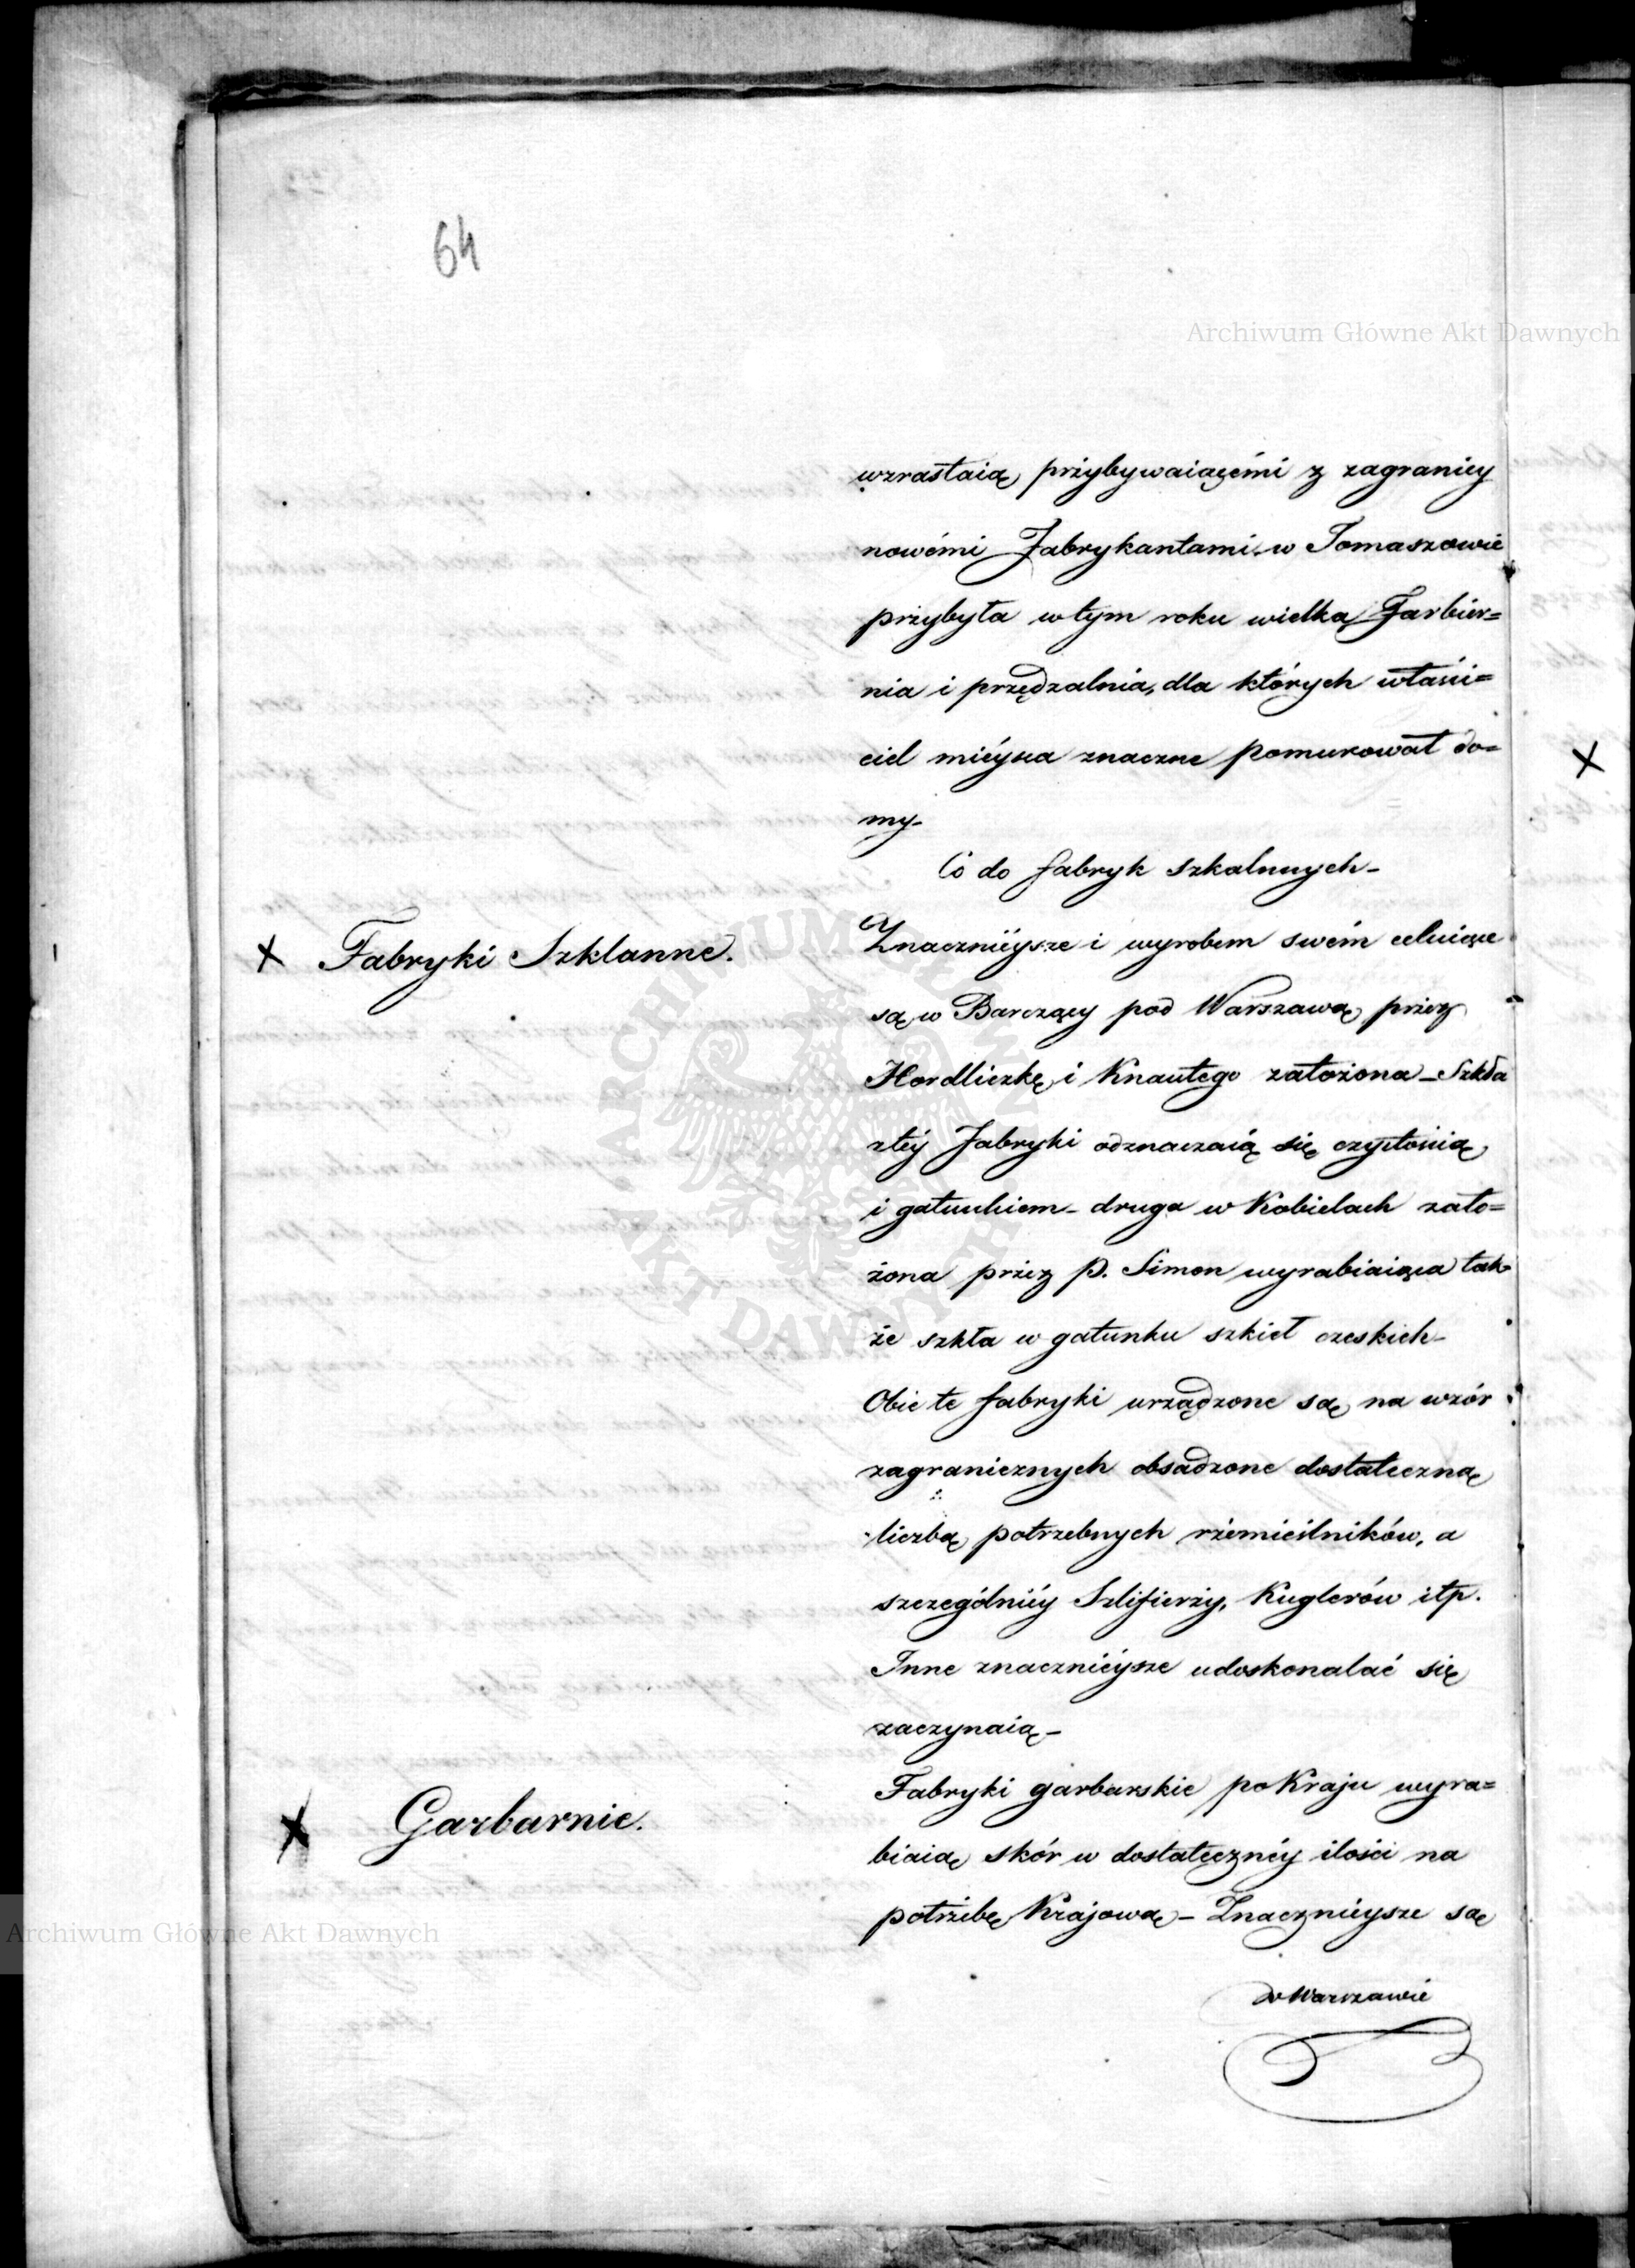 64
Archiwum Główne Akt Dawnych
wzrastaią przybywaiącémi z zagranicy
nowémi Fabrykantami w Tomaszowie
przybyła w tym roku wielka Farbier=
nia i przędzalnia, dla których właści=
ciel miéysca znaczne pomurował do=
my-
Co do fabryk szkalnnych-
X Fabryki Szklanne.
Znacznieysze i wyrobem swém celuiące
są w Barczący pod Warszawą przez
Hordliczkę i Knautego założona - Szkła
z téy Fabryki odznaczaią się czystością
i gatunkiem - druga w Kobielach zało=
żona przez P. Simon wyrabiaiąca tak=
że szkła w gatunku szkieł czeskich-
Obie te fabryki urządzone są na wzór
zagranicznych obsadzone dostateczną
liczbą potrzebnych rzemieślników, a
szczególniéy Szlifierzy, Kuglerów itp.
Inne znacznieysze udoskonalać się
zaczynaią-
X Garbarnie.
Fabryki garbarskie po Kraju wyra=
biaią skór w dostatecznéy ilości na
potrzebę Krajową - Znacznieysze są
w Warszawie
Archiwum Główne Akt Dawnych
X
ARCHIWUM GŁÓWNE AKT DAWNYCH